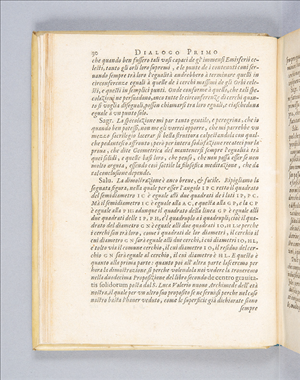 30 DIALOGO PRIMO
che quando ben fussero tali vasi capaci de gl'immensi Emisferii ce-
lesti, tanto gli orli loro supremi, e le punte de i contenuti coni ser-
uando sempre trà loro l'egualità andrebbero à terminare quelli in
circonferenze eguali à quelle de i cerchi massimi de gli Orbi cele-
sti, e questi in semplici punti. Onde conforme à quello, che tali spe-
colazioni ne persuadono, anco tutte le circonferenze di cerchi quan-
to si voglia diseguali, posson chiamarsi tra loro eguali, e ciascheduna
eguale à vn punto solo.
Sagr. La specolazione mi par tanto gentile, e peregrina, che io
quando ben potessi, non me gli vorrei opporre, che mi parrebbe vn
mezzo sacrilegio lacerar sì bella struttura calpestandola con qual-
che pedantesco affronto; però per intera sodisfazione recateci pur la
proua, che dite Geometrica del mantenersi sempre l'egualità trà
quei solidi, e quelle basi loro, che penso, che non possa esser se non
molto arguta, essendo così sottile la filosofica meditazione, che da
tal conclusione depende.
Salu. La dimostrazione è anco breue, e facile. Ripigliamo la
segnata figura, nella quale per esser l'angolo I P C retto il quadrato
del semidiametro I C è eguale alli due quadrati delle linee I P, P C.
Mà il semidiametro I C è eguale alla A C, e questa alla G P, e la C P
è eguale alla P H adunque il quadrato della linea G P è eguale alli
quadrati delle I P, P H, e 'l quadruplo a i quadrupli, cioè il qua-
drato del diametro G N è eguale alli due quadrati I O, H L, e perche
i cerchi son trà loro, come i quadrati de lor diametri, il cerchio il
cui diametro G N sarà eguale alli due cerchi, i cui diametri I O, H L,
e tolto via il comune cerchio, il cui diametro I O, il residuo del cer-
chio G N sarà eguale al cerchio, il cui diametro è H L. E questo è
quanto alla prima parte: quanto poi all'altra parte lasceremo per
hora la dimostrazione sì perche volendola noi vedere la troueremo
nella duodecima Proposizione del libro secondo de centro grauita-
tis solidorum posta dal S. Luca Valerio nuouo Archimede dell'età
nostra, il quale per vn altro suo proposito se ne seruì sì perche nel caso
nostro basta l'hauer veduto, come le superficie già dichiarate siano
sempre